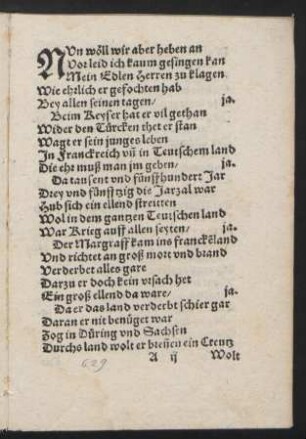 NVn wöll wir aber heben an
Vor leid ich kaum gesingen kan
Mein Edlen Herren zu klagen
Wie ehrlich er gefochten hab
Bey allen seinen tagen/ ja.
Beim Keyser hat er vil gethan
Wider den Türcken thet er stan
Wagt er sein junges leben
In Franckreich vñ in Teutschem land
Die ehr muß man jm geben/ ja.
Da tausent vnd fünffhundert Jar
Drey vnd fünfftzig die Jarzal war
Hub sich ein ellend streitten
Wol in dem gantzen Teutschen land
War Krieg auff allen seyten/ ja.
Der Margraff kam ins franckēland
Vnd richtet an groß mort vnd brand
Verderbet alles gare
Darzu er doch kein vrsach het
Ein groß ellend da ware/ ja.
Da er das land verderbt schier gar
Daran er nit benüget war
Zog in Düring vnd Sachsen
Durchs land wolt er breüen ein Creutz
A ij Wolt
629